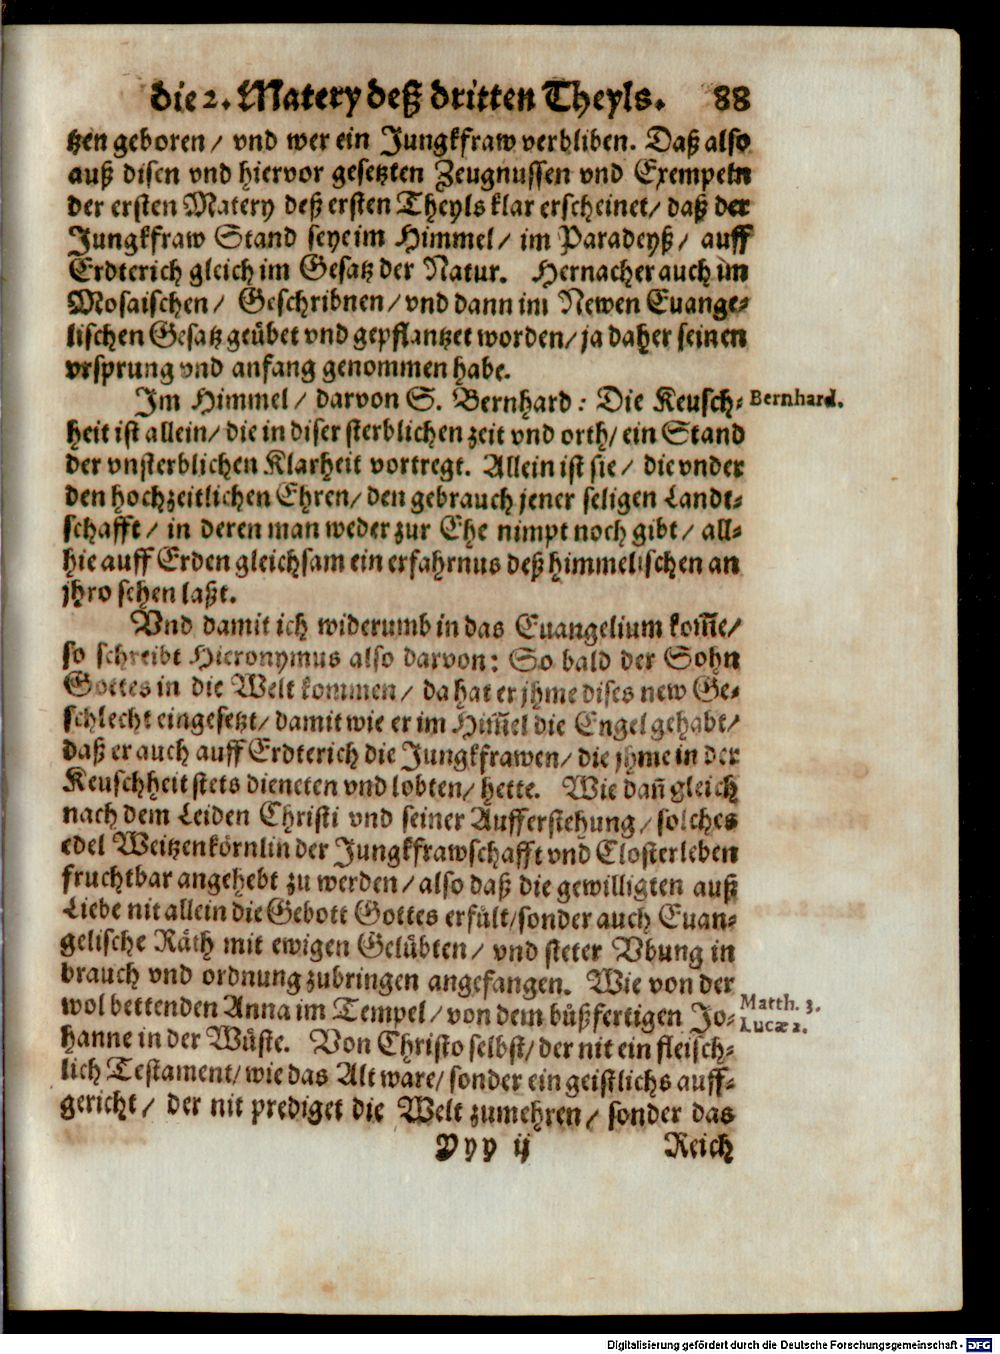 die 2. Matery deß dritten Theyls. 88
tzen geboren / vnd wer ein Jungkfraw verbliben. Daß also
auß disen vnd hiervor gesetzten Zeugnussen vnd Exempeln
der ersten Matery deß ersten Theyls klar erscheinet / daß der
Jungkfraw Stand seye im Himmel / im Paradeyß / auff
Erdterich gleich im Gesatz der Natur. Hernacher auch im
Mosaischen / Geschribnen / vnd dann im Newen Euange-
lischen Gesatz geübet vnd gepflantzet worden / ja daher seinen
vrsprung vnd anfang genommen habe.
Im Himmel / darvon S. Bernhard: Die Keusch- Bernhard.
heit ist allein / die in diser sterblichen zeit vnd orth / ein Stand
der vnsterblichen Klarheit vortregt. Allein ist sie / die vnder
den hochzeitlichen Ehren / den gebrauch jener seligen Landt-
schafft / in deren man weder zur Ehe nimpt noch gibt / all-
hie auff Erden gleichsam ein erfahrnus deß himmelischen an
jhro sehen laßt.
Vnd damit ich widerumb in das Euangelium kom̃e /
so schreibt Hieronymus also darvon: So bald der Sohn
Gottes in die Welt kommen / da hat er jhme dises new Ge-
schlecht eingesetzt / damit wie er im Him̃el die Engel gehabt /
daß er auch auff Erdterich die Jungkfrawen / die jhme in der
Keuschheit stets dieneten vnd lobten / hette. Wie dañ gleich
nach dem Leiden Christi vnd seiner Aufferstehung / solches
edel Weitzenkörnlin der Jungkfrawschafft vnd Closterleben
fruchtbar angehebt zu werden / also daß die gewilligten auß
Liebe nit allein die Gebott Gottes erfült / sonder auch Euan-
gelische Räth mit ewigen Gelübten / vnd steter Vbung in
brauch vnd ordnung zubringen angefangen. Wie von der
wol bettenden Anna im Tempel / von dem büßfertigen Jo- Matth. 3.
hanne in der Wüste. Von Christo selbst / der nit ein fleisch- Lucæ 2.
lich Testament / wie das Alt ware / sonder ein geistlichs auff-
gericht / der nit prediget die Welt zumehren / sonder das
Yyy ij Reich
Digitalisierung gefördert durch die Deutsche Forschungsgemeinschaft - DFG